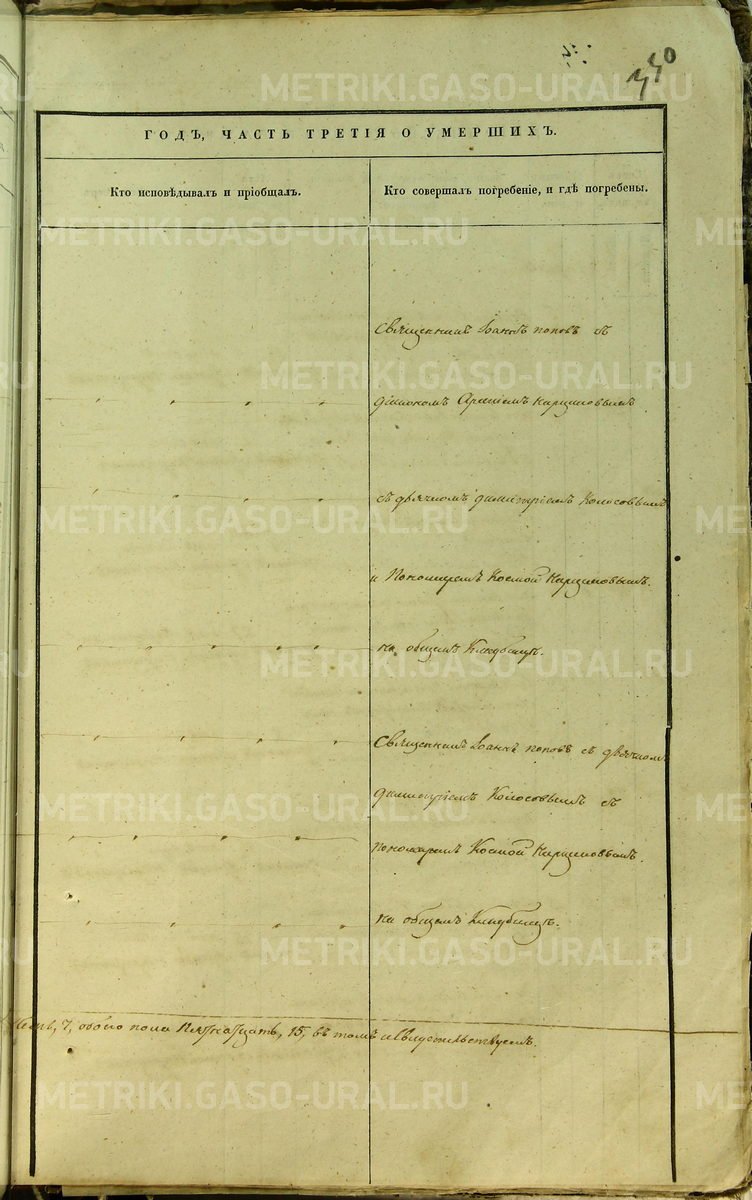 440
ГОДЪ, ЧАСТЬ ТРЕТІЯ О УМЕРШИХЪ.
Кто исповѣдывалъ и пріобщалъ.
Кто совершалъ погребеніе, и гдѣ погребены.
Священникъ Іоаннъ поповъ съ
діакономъ Арсеніемъ
съ дьячкомъ димитріемъ Колосовымъ
и Пономаремъ Космой
на общемъ Кладбищѣ.
Священникъ Іоаннъ поповъ съ дьячкомъ
димитріемъ Колосовымъ съ
пономаремъ Космой
на общемъ Кладбищѣ.
7, обоего пола Пятнадцать, 15, въ томъ и свидетельствуемъ.
METRIKI.GASO-URAL.RU